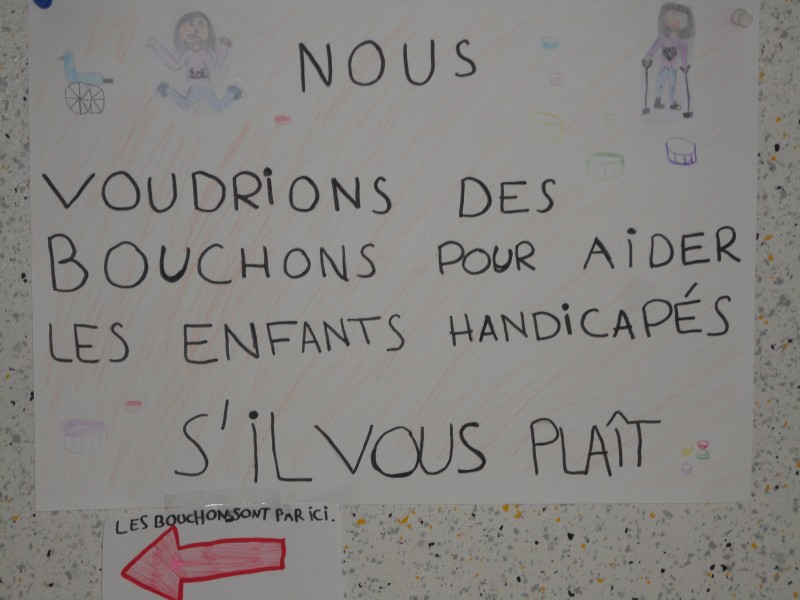 NOUS
VOUDRiONS DES
BOUCHONS POUR AiDER
LES ENFANTS HANDiCAPÉS
S'iL VOUS PLAÎT
LES BOUCHONS SONT PAR iCi.